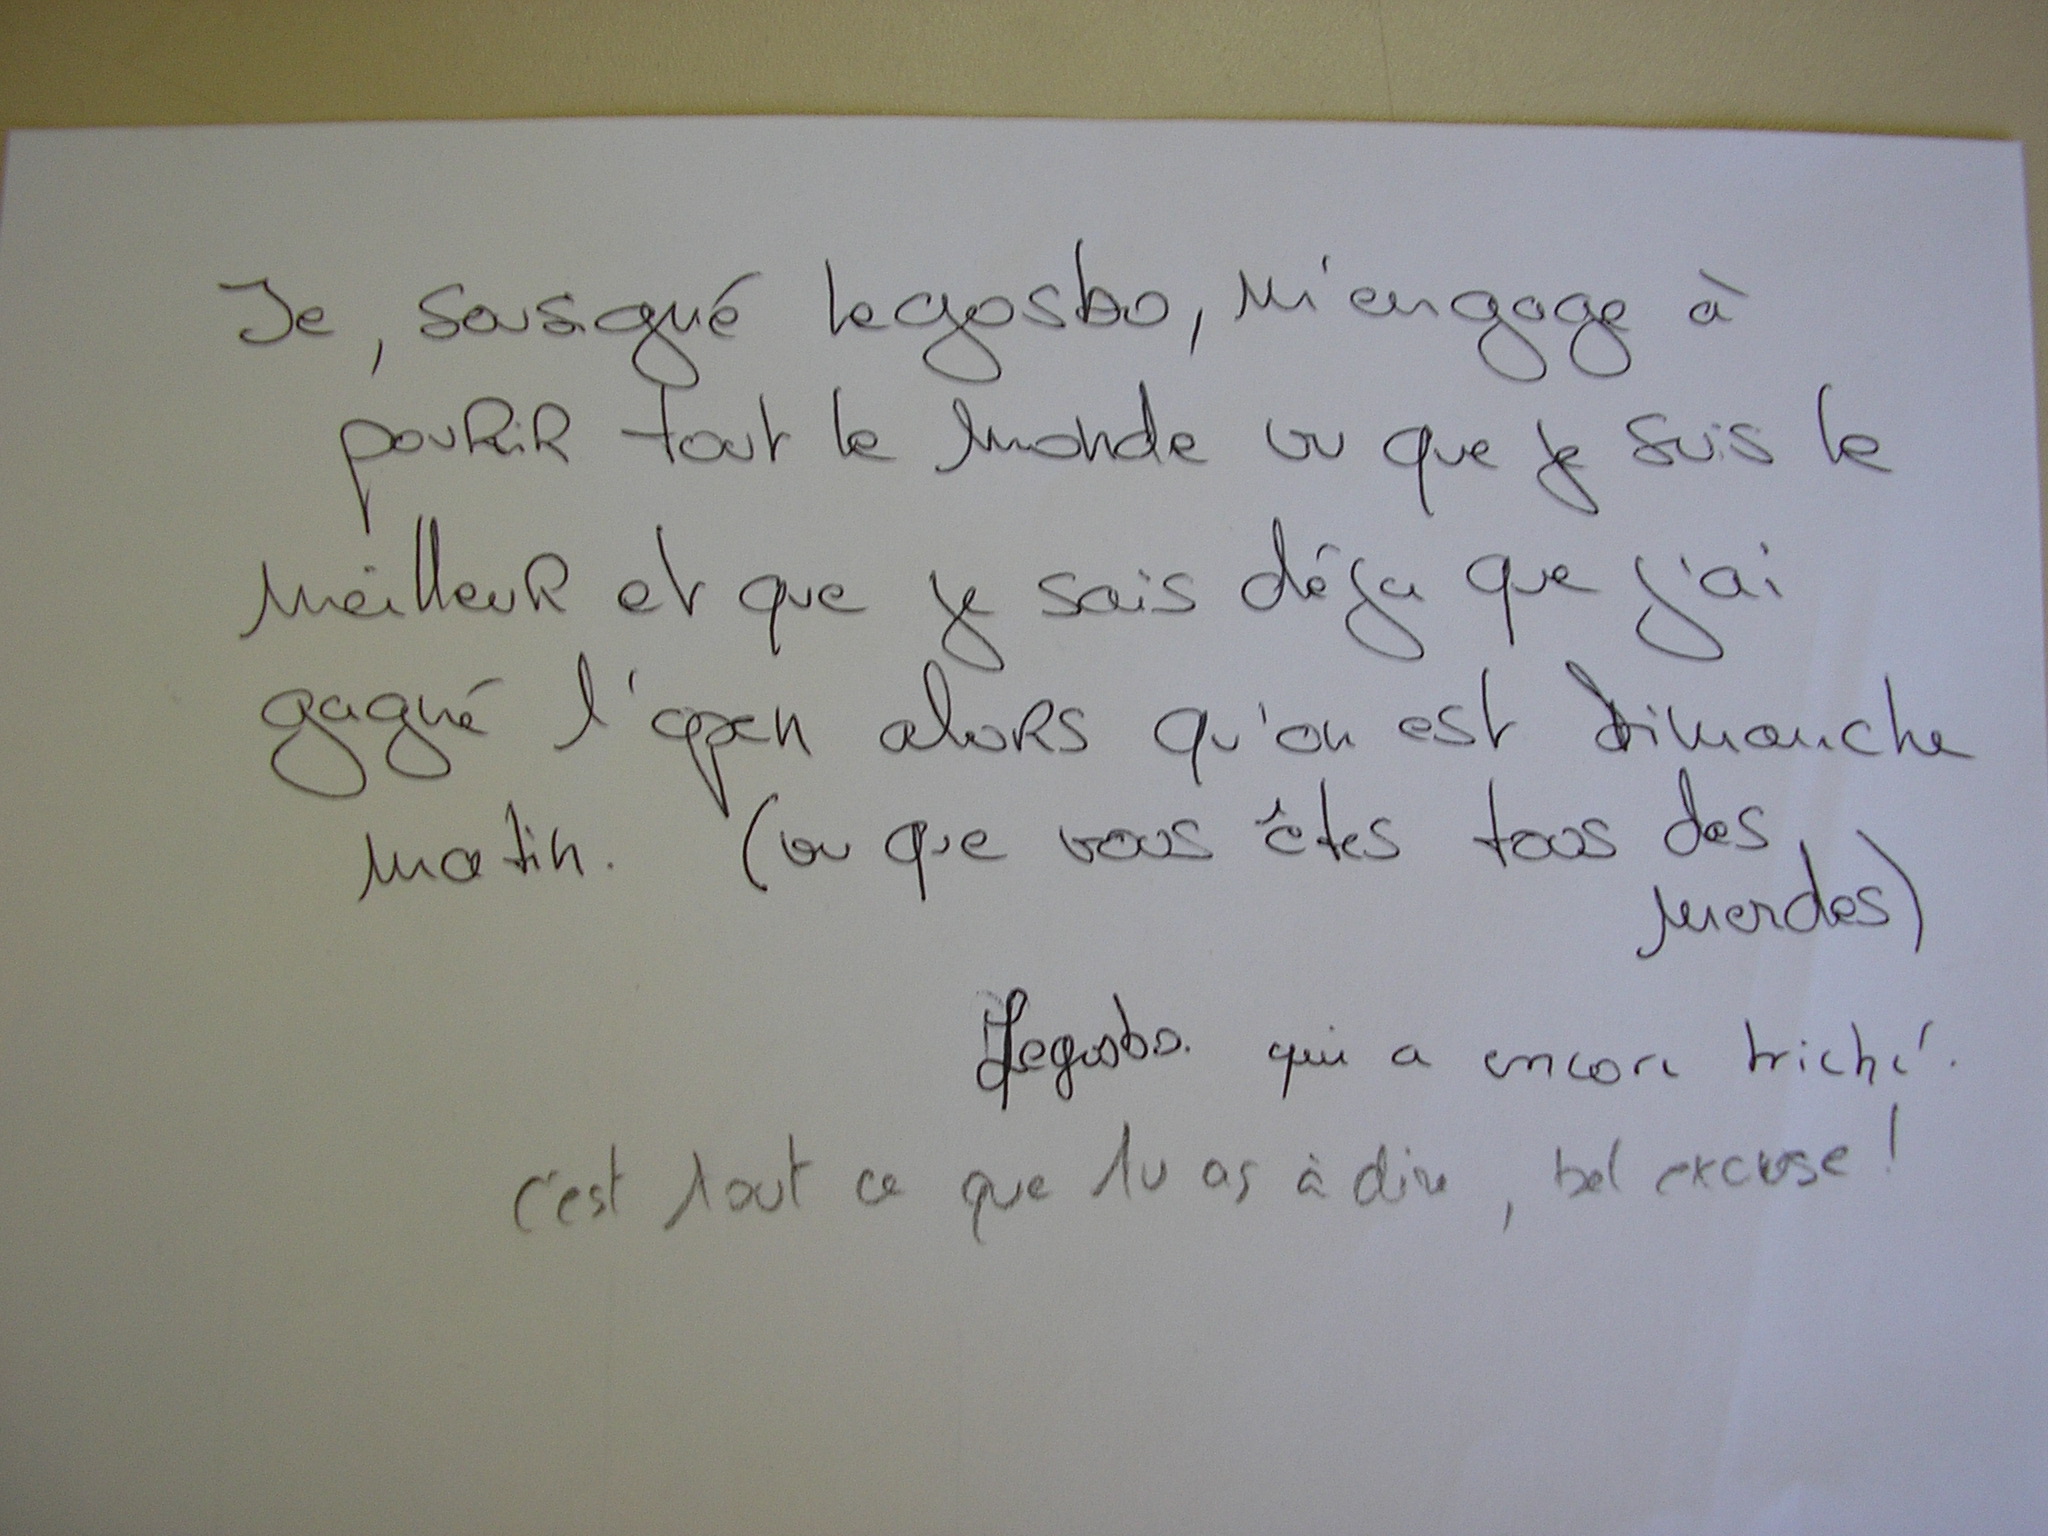 Je, sousigné legosbo, m'engage à
pourir tout le monde vu que je suis le
meilleur et que je sais déja que j'ai
gagné l'open alors qu'on est dimanche
matin. (vu que vous êtes tous des
merdes)
Legosbo. qui a encore triché.
c'est tout ce que tu as à dire, bel excuse !